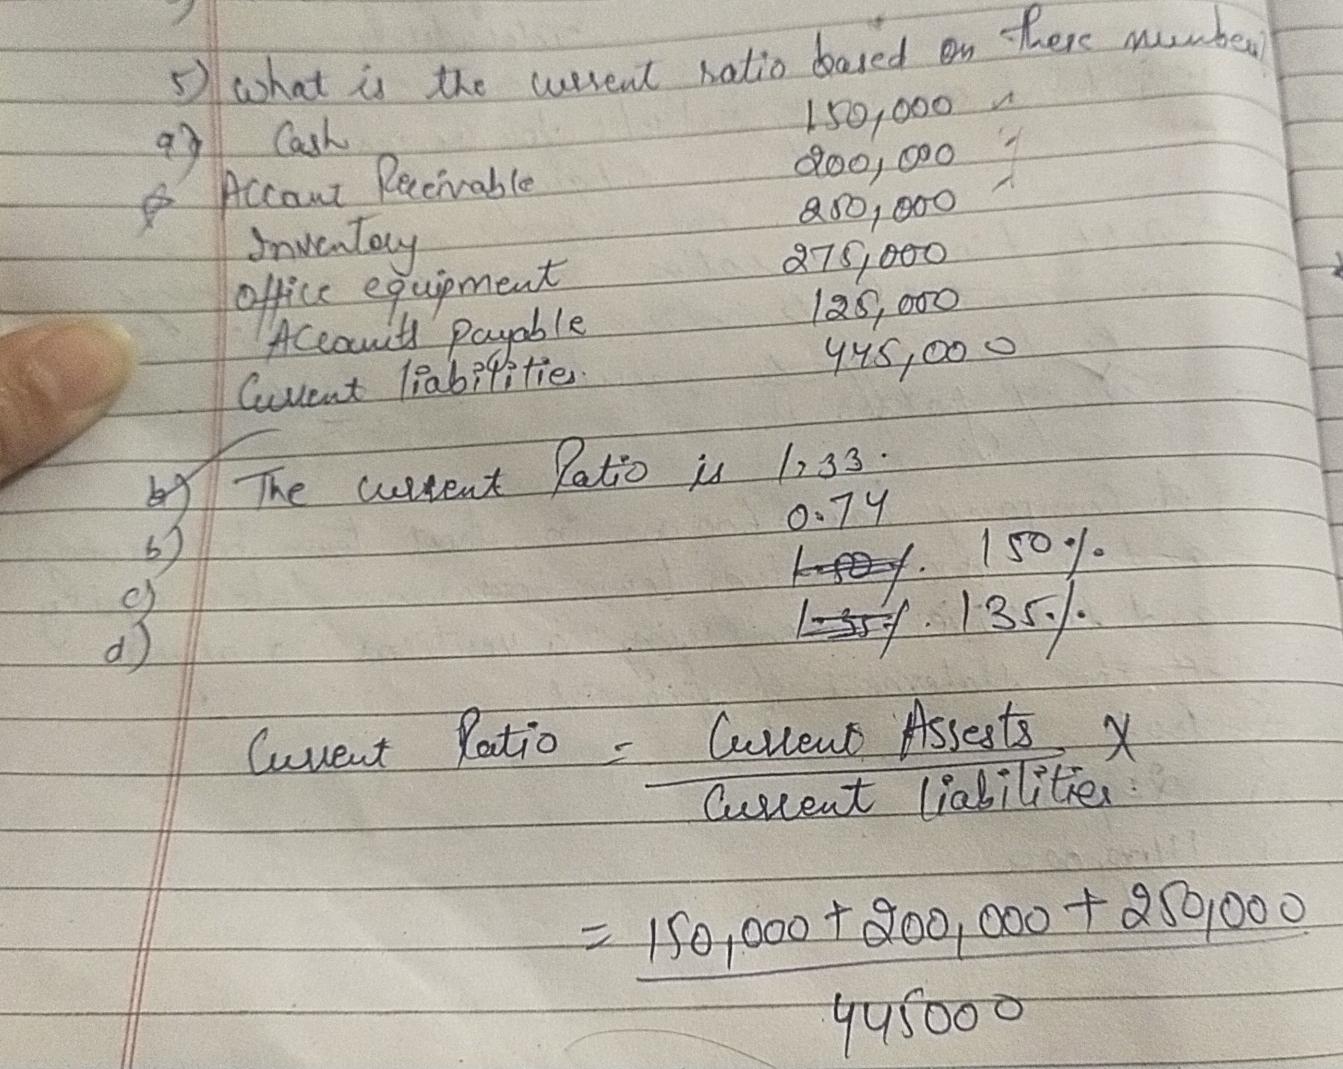 5) What is the current ratio based on these number
a) Cash 150,000
Account Receivable 200,000
Inventory 250,000
Office equipment 275,000
Accounts payable 125,000
Current liabilities. 445,000
b) The current Ratio is 1.33.
b) 0.74
c) 150%
d) 135%
Current Ratio = Current Assests X
Current liabilities
= 150,000 + 200,000 + 250,000
445000